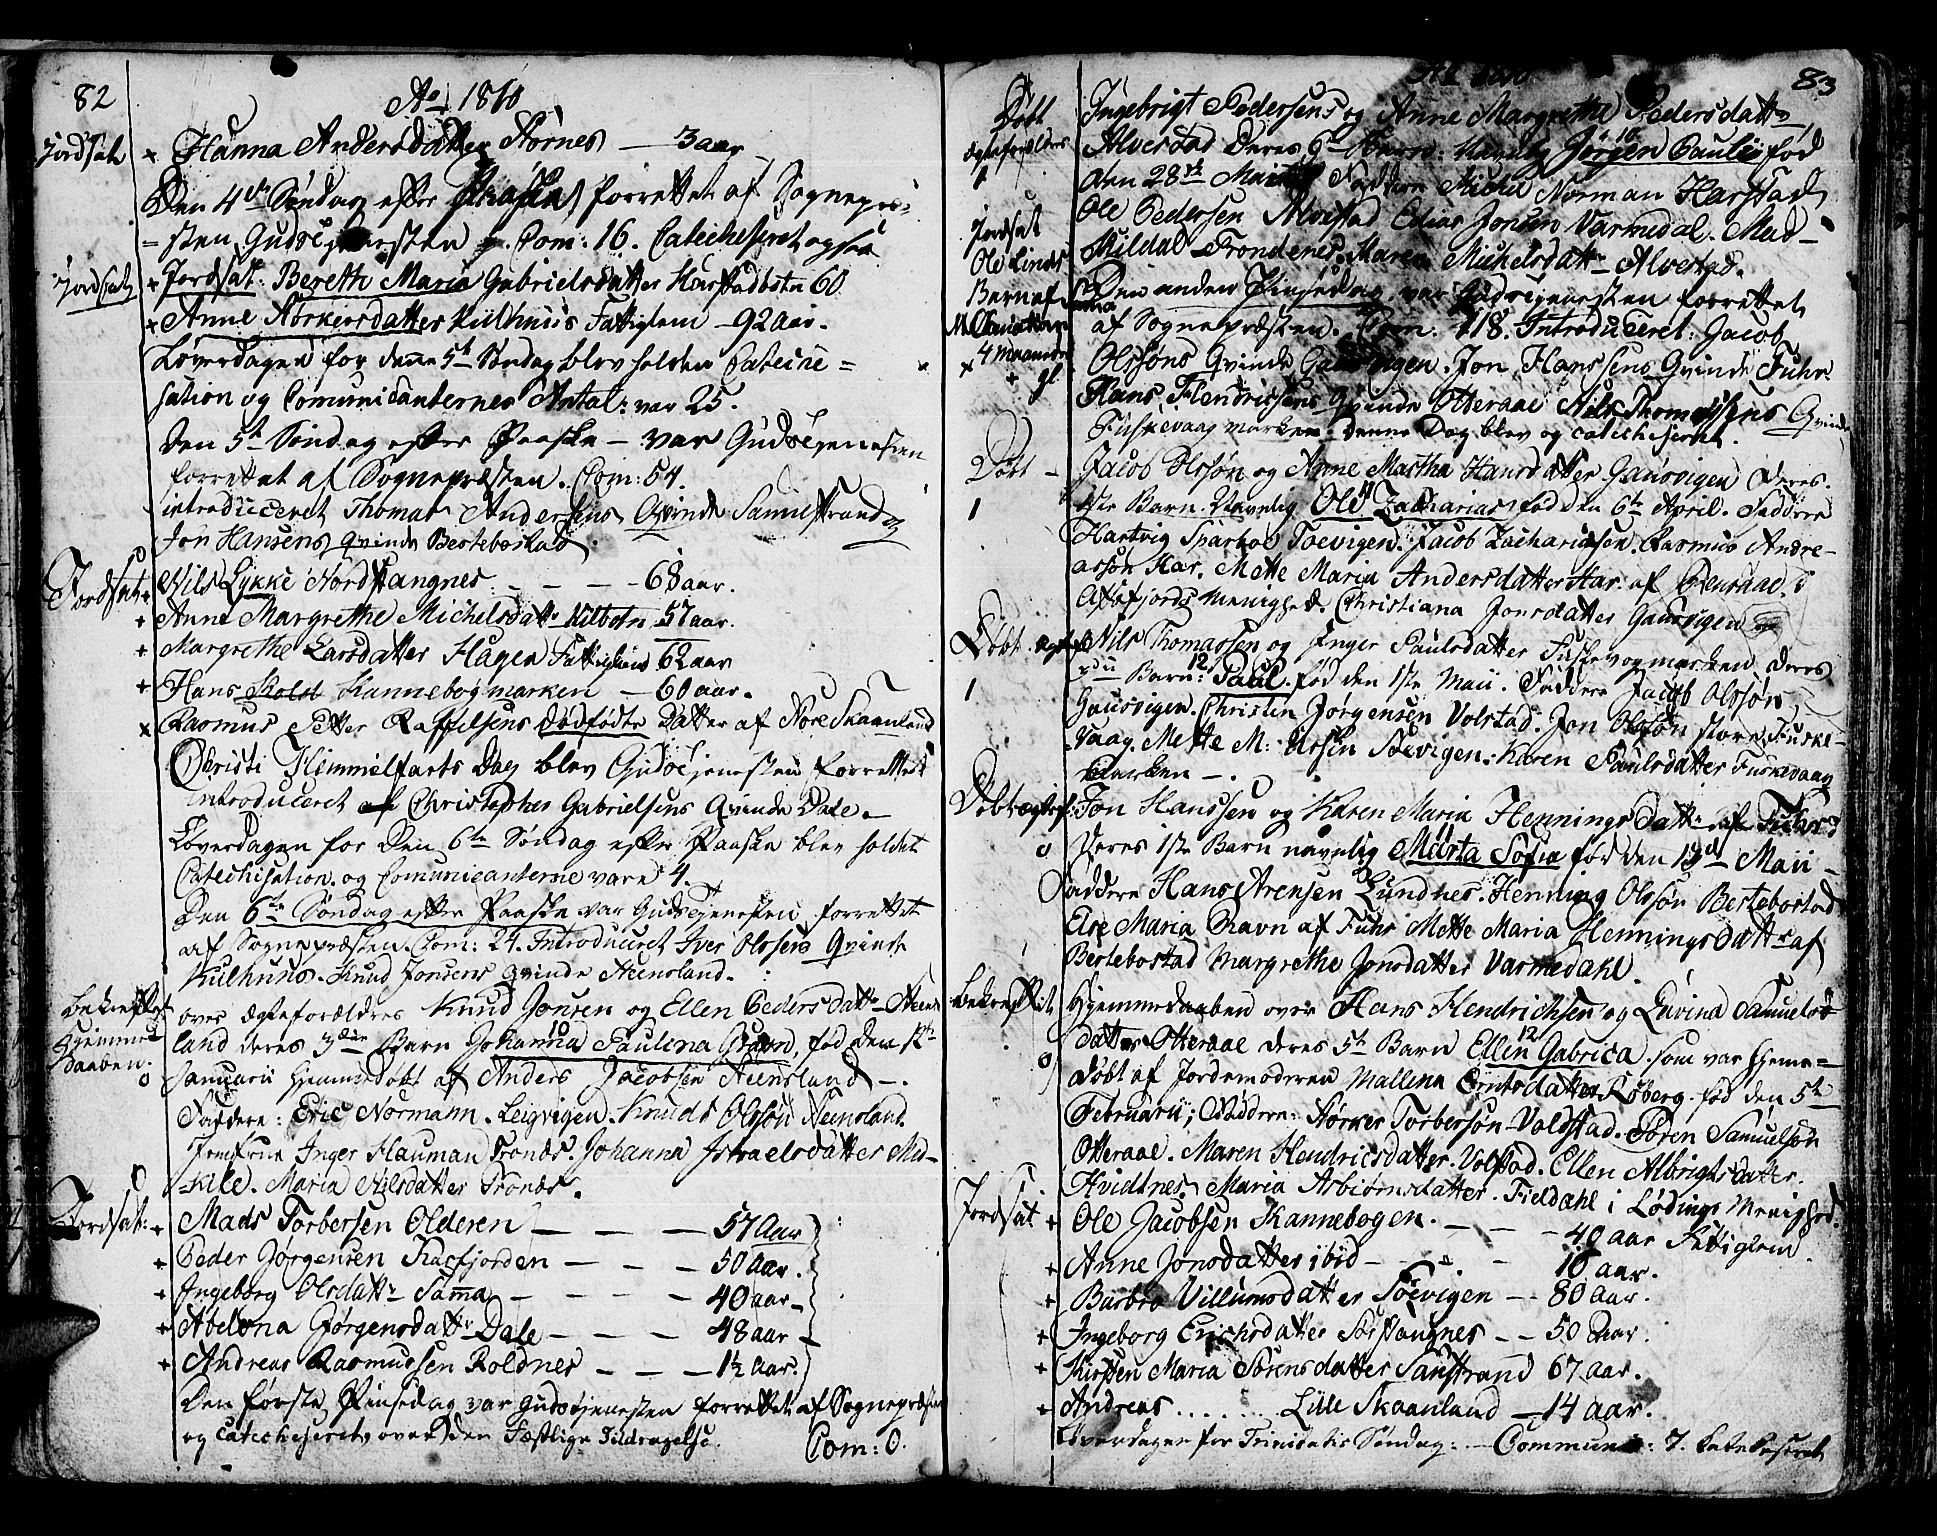 82
Ao 1810
Jordsat x Hanna Andersdatter Størnes — 3 aar
Den 4de Søndag efter Paaske forrettet af Sognepræ-
=sten Gudstjenesten. Com: 16. Catechiseret ogsaa
Jordsat + Jordsat: Bereth Maria Gabrielsdatter Harstadbotn 60
+ Anne Størkersdatter Kulhuus Fattiglem — 92 aar.
Løverdagen før denne 5te Søndag blev holden Catechi=
sation og Comunicanternes Antal: var 25.
Den 5te Søndag efter Paaske — var Gudstjenesten
forrettet af Sognepræsten. Com: 54.
introduceret Thomas Andersens Qvinde Samestrand og
Jon Hansens Qvinde Bertebostad.
Jordsat + Nils Lykke Nordstangnes — — — 68 aar.
+ Anne Margrethe Michelsdattr Kilbotn 57 aar.
+ Margrethe Larsdatter Hagen Fattiglem 62 aar
+ Hans Skold Kannebogmarken — 60 aar.
x Rasmus Petter Raffelsens dødfødte Datter af Nøre Skaanland
Christi Himmelfarts Dag blev Gudstjenesten forrettet
introduceret af Christopher Gabrielsens Qvinde Dale.
Løverdagen før Den 6te Søndag efter Paaske blev holdet
Catechisation. og Comunicanterne vare 4.
Den 6te Søndag efter Paaske var Gudstjenesten forrettet
af Sognepræsten. Com: 24. Introduceret Iver Olssens Qvinde
Kulhuus. Knud Jonsens Qvinde Steensland.
Bekræftet Hjemmedaaben. o
over Ægteforældres Knud Jonsen og Ellen Pedersdattr Steens
land deres 3die Barn Johanna Paulina Gravn, fød den 12te
Januarii hjemmedøbt af Anders Jacobsen Steensland —.
Faddere: Eric Normann. Leigvigen. Knud Olssøn Steensland.
Jomfrue Inger Hauman Tronæs. Johanna Israelsdatter Mel-
kile. Maria Nilsdatter Tronæs.
Jordsat: + Mads Torbersen Olderen — — — 57 Aar
+ Peder Jørgensen Kasfjorden — — — 50 Aar.
+ Ingeborg Olsdattr Sama — — — 40 aar —
+ Abelona Jørgensdattr Dale — — — 48 aar —
+ Andreas Rasmussen Roldnes — — — 1½ Aar.
Den første Pinsedag var Gudstjenesten forrettet af Sognepræsten
og catechiseret over den Festlige Tildragelse. Com: 0.
83
Døbt Ægteforældres 1
Ingebrigt Pedersens og Anne Margrethe Pedersdattr
Alvestad Deres 9de Barn: Navnlig Jørgen Pauli fød
den 28de Martii Faddere Michel Norman Harstad
Ole Pedersen Alvestad Elias Jonsen Varmedal. Mad-
Mildal Trondenes. Maren Michelsdattr Alvestad.
Jordsat Ole Linds Barn af 4 maaneder gl
Den anden Pinsedag var Gudstjenesten forrettet
af Sognepræsten. Com. 118. Introduceret: Jacob
Olssøns Qvinde Gausvigen. Jon Hanssens Qvinde Fuhr
Hans Hendrichsens Qvinde Otteraae Nils Thomassens Qvinde
Fuskevaag marken denne Dag blev og catechiseret.
Døbt — 1
Jacob Olssøn og Anne Martha Hansdatter Gausvigen Deres
1ste Barn. Navnlig Ole Zacharias fød den 6te April. Faddere
Hartvig Sparboe Soevigen. Jacob Zachariasen. Rasmus Andre-
assøn Kar. Mette Maria Andersdatter Kar. af Rensaae i
Astafjords Menighed. Christiana Jonsdatter Gausvigen
Døbt 1
Nils Thomassen og Inger Paulsdatter Fuskevogmarken deres
Barn: Paul. fød den 1ste Maii. Faddere Jacob Olssøn
Gausvigen. Christen Jørgensen Volstad. Jon Olssøn store Fuske-
vaag. Mette M: Soevigen. Karen Paulsdatter Fuskevaag
Marken —.
Døbt Ægtefor: o
Jon Hanssen og Karen Maria Henningsdattr af Fuhr
Deres 1ste Barn navnlig Marta Sofia fød den 13de Maii —
Faddere Hans Arensen Lundnes. Henning Olssøn Bertebostad
Else Maria Ravn af Fuhr Mette Maria Henningsdattr af
Bertebostad Margrethe Jonsdatter Varmedahl.
Bekræftet o
Hjemmedaaben over Hans Hendrichsen og Lavina Samuels
datter Otteraae deres 5te Barn Ellen Gabrica. som var hjeme=
døbt af Jordemoderen Mallena Berntsdatter Røberg. fød den 5te
Februarii; Faddere: Størker Torbersøn Volstad. Søren Samuelsøn
Otteraae. Maren Hendricsdatter. Volstad. Ellen Albrigtsdatter.
Hvidtnes. Maria Arbiørnsdatter. Fieldahl i Lødings Menighed.
Jordsat + Ole Jacobsen Kannebogen. — — 40 aar Fattiglem.
+ Anne Jonsdatter ibid — — — 10 aar.
+ Barbro Villumsdatter Soevigen — 80 aar.
+ Ingeborg Erichsdatter Sørstangnes — — 50 Aar.
+ Kirsten Maria Sørensdatter Sanstrand 67 aar.
+ Andreas . . . . . . Lille Skaanland — 14 aar.
Løverdagen før Trinitatis Søndag: — Commun: 7. Catechiseret